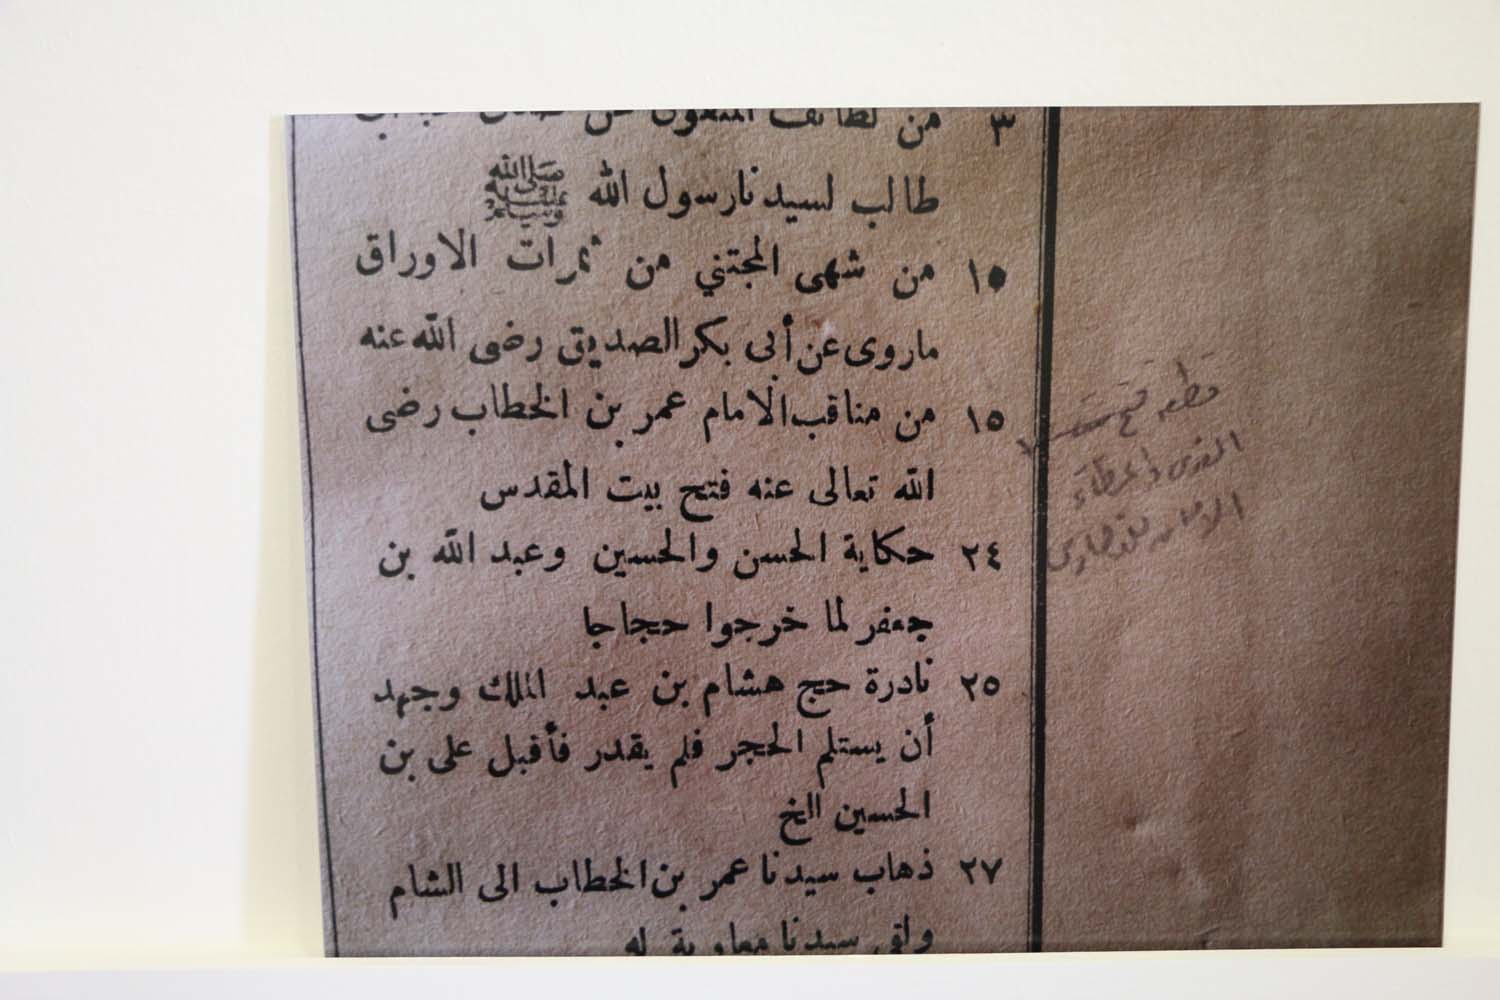 ٣ من لطائف المنقول عن
طالب لسيدنا رسول الله ﷺ
١٥ من شهى المجتني من ثمرات الاوراق
ماروى عن أبى بكر الصديق رضى الله عنه
١٥ من مناقب الامام عمر بن الخطاب رضى
الله تعالى عنه فتح بيت المقدس
٢٤ حكاية الحسن والحسين وعبد الله بن
جعفر لما خرجوا حجاجا
٢٥ نادرة حج هشام بن عبد الملك وجهد
أن يستلم الحجر فلم يقدر فأقبل على بن
الحسين الخ
٢٧ ذهاب سيدنا عمر بن الخطاب الى الشام
سيدنا معاوية له